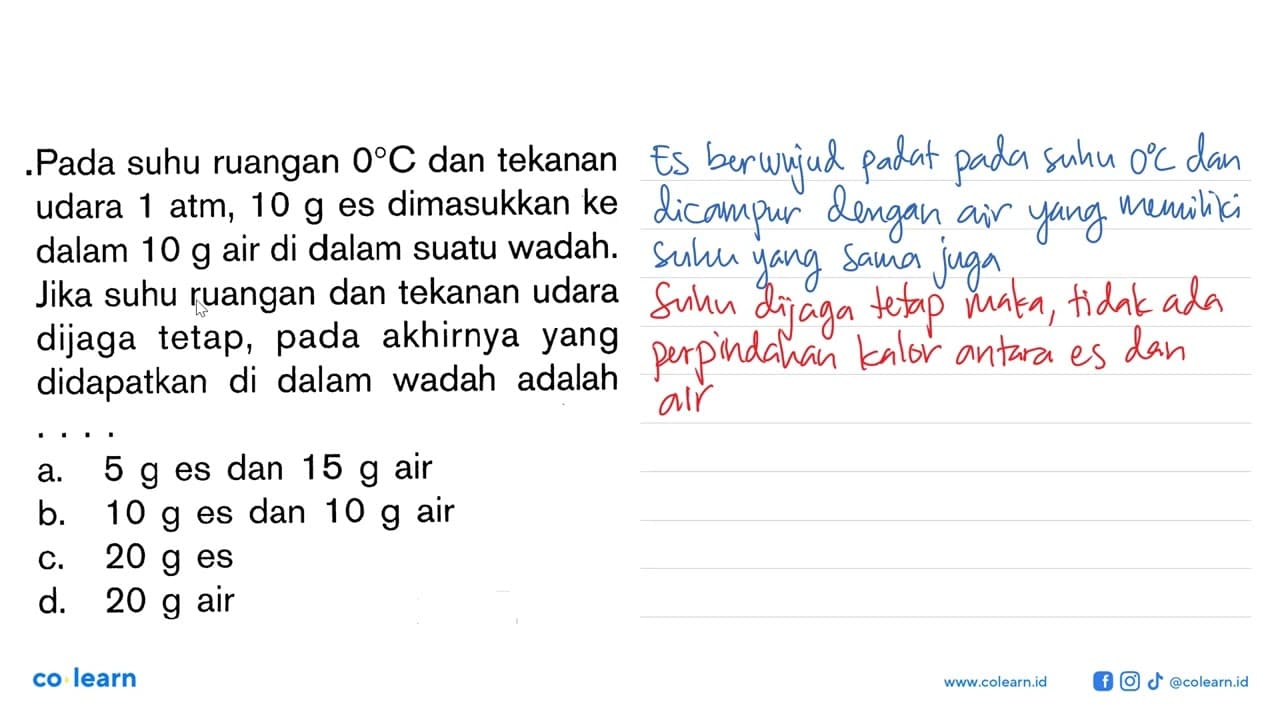 .Pada suhu ruangan 0°C dan tekanan
udara 1 atm, 10 g es dimasukkan ke
dalam 10 g air di dalam suatu wadah.
Jika suhu ruangan dan tekanan udara
dijaga tetap, pada akhirnya yang
didapatkan di dalam wadah adalah
. . . .
a. 5 g es dan 15 g air
b. 10 g es dan 10 g air
c. 20 g es
d. 20 g air
Es berwujud padat pada suhu 0°C dan
dicampur dengan air yang memiliki
suhu yang sama juga
Suhu dijaga tetap maka, tidak ada
perpindahan kalor antara es dan
air
co learn
www.colearn.id
@colearn.id